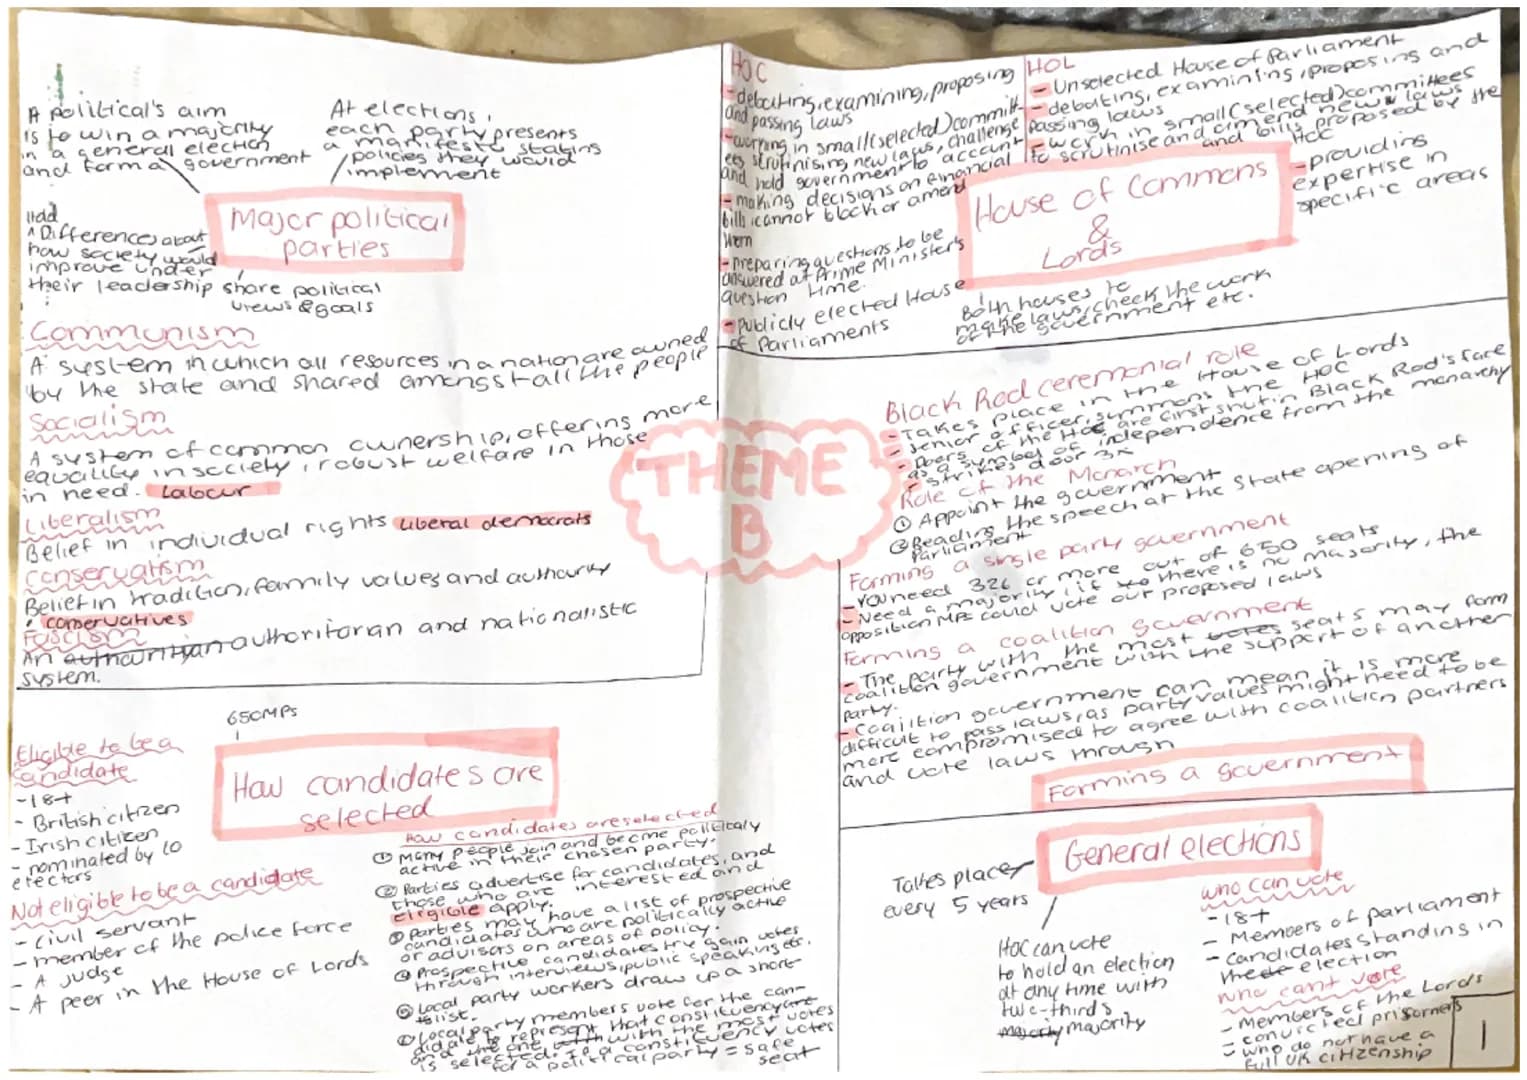 A political's aim
is to win a majority
in a general election
and form a government
At elections,
each party presents
a manifesto stating
policies they would
implement
Major political
parties
Differences about
how society would
improve under
their leadership
share political
views & goals
Communism
A system in which all resources in a nation are owned
by the state and shared amongst all the people
Socialism
A system of common ownership, offering more
equality in society, robust welfare in those
in need. Labour
Liberalism
Belief in individual rights liberal democrats
Conservatism
Belief in tradition, family values and authority
conservatives
Fascism
An authoritarian and nationalistic
system.
HOC
- debating, examining, proposing
and passing laws
- working in small (selected) committ-
ees scrutinising new laws, challenge
and hold government to account
- making decisions on financial
bills cannot block or amend
them
- preparing questions to be
answered at Prime Minister's
question time.
- Publicly elected House
of Parliaments
HOL
- Unselected House of Parliament
- debating, examining, proposing and
passing laws
- work in small (selected) committees
to scrutinise and amend new laws
and bills proposed by the
HOC
- providing
expertise in
specific areas
House of Commons
&
Lords
Both houses to
make laws, check the work
of the government etc.
THEME
B
Black Rod ceremonial role
- Takes place in the House of Lords
- senior officer, summons the HOC
- Doors of the HOC are first shut in Black Rod's face
as a symbol of independence from the monarchy
- strikes door 3x
Role of the Monarch
① Appoint the government
② Reading the speech at the State opening of
Parliament
Forming a single party government
- You need 326 or more out of 650 seats
- Need a majority, if there is no majority, the
opposition MPs could vote out proposed laws
Forming a coalition government
- The party with the most votes seats may form
coalition government with the support of another
party.
- Coalition government can mean it is more
difficult to pass laws, as party values might need to be
more compromised to agree with coalition partners
and vote laws through
Forming a government
650 MPs
How candidates are
selected
Eligible to be a
candidate
- 18+
- British citizen
- Irish citizen
- nominated by 10
electors
Not eligible to be a candidate
- Civil servant
- member of the police force
- A judge
- A peer in the House of Lords
How candidates are selected
① Many people join and become politicaly
active in their chosen party.
② Parties advertise for candidates, and
those who are interested and
eligible apply.
③ parties may have a list of prospective
candidates who are politically active
or advisors on areas of policy.
④ Prospective candidates try gain votes
through interviews, public speaking etc.
⑤ Local party workers draw up a short-
list.
⑥ Local party members vote for the can-
didate to represent that constituency
and the one with the most votes
is selected. In a constituency votes
for a political party = safe
seat
General elections
Takes place
every 5 years
HOC can vote
to hold an election
at any time with
two-thirds
majority majority
who can vote
- 18+
- Members of parliament
- candidates standing in
the election
who can't vote
- Members of the Lords
- convicted prisoners
- who do not have a
full UK citizenship
1